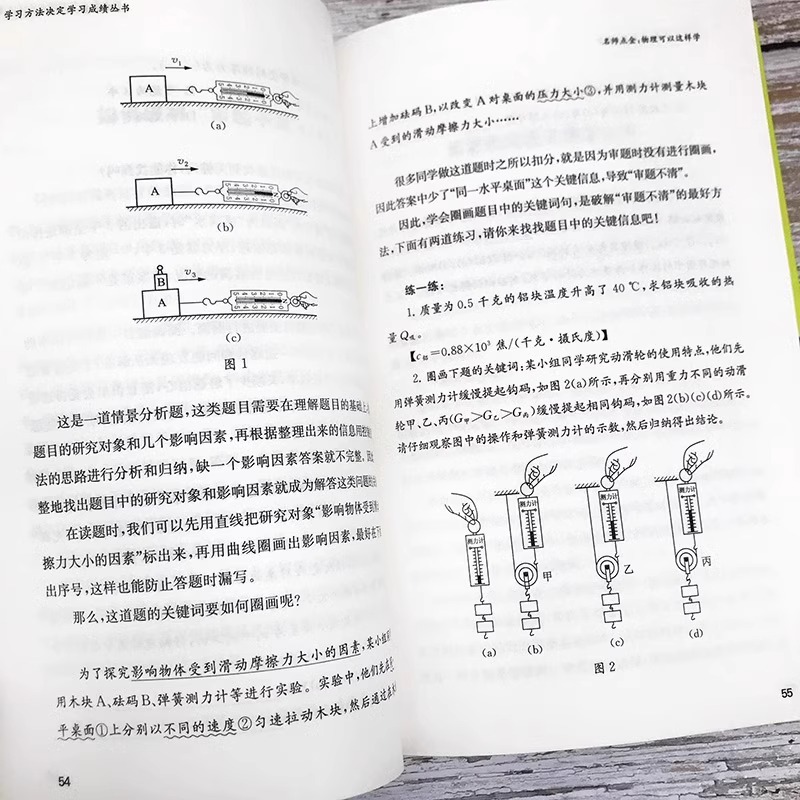 学习方法决定学习成绩丛书
v₁
A
(a)
v₂
A
(b)
v₃
B
A
(c)
图 1
这是一道情景分析题，这类题目需要在理解题目的基础上
题目的研究对象和几个影响因素，再根据整理出来的信息用
法的思路进行分析和归纳，缺一个影响因素答案就不完整。
整地找出题目中的研究对象和影响因素就成为解答这类问题的
在读题时，我们可以先用直线把研究对象“影响物体受到
擦力大小的因素”标出来，再用曲线圈画出影响因素，最好在
出序号，这样也能防止答题时漏写。
那么，这道题的关键词要如何圈画呢？
为了探究影响物体受到滑动摩擦力大小的因素，某小组
用木块 A、砝码 B、弹簧测力计等进行实验。实验中，他们先在
平桌面①上分别以不同的速度②匀速拉动木块，然后通过在
54
名师点金：物理可以这样学
上增加砝码 B，以改变 A 对桌面的压力大小③，并用测力计测量木块
A 受到的滑动摩擦力大小……
很多同学做这道题时之所以扣分，就是因为审题时没有进行圈画，
因此答案中少了“同一水平桌面”这个关键信息，导致“审题不清”。
因此，学会圈画题目中的关键词句，是破解“审题不清”的最好方
法，下面有两道练习，请你来找找题目中的关键信息吧！
练一练：
1. 质量为 0.5 千克的铝块温度升高了 40 ℃，求铝块吸收的热
量 Q吸。
【c铝=0.88×10³ 焦/(千克·摄氏度)】
2. 圈画下题的关键词：某小组同学研究动滑轮的使用特点，他们先
用弹簧测力计缓慢提起钩码，如图 2(a)所示，再分别用重力不同的动滑
轮甲、乙、丙(G甲>G乙>G丙)缓慢提起相同钩码，如图 2(b)(c)(d)所示。
请仔细观察图中的操作和弹簧测力计的示数，然后归纳得出结论。
测力计
测力计
测力计
测力计
甲
乙
丙
(a)
(b)
(c)
(d)
图 2
55